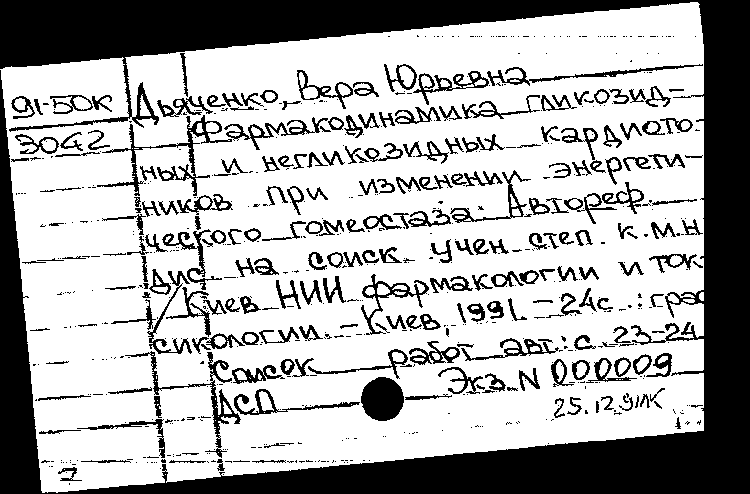 91-50к
3042
Дьяченко, Вера Юрьевна
Фармакодинамика гликозид-
ных и негликозидных кардиото-
ников при изменении энергети-
ческого гомеостаза: Автореф.
дис. на соиск. учен. степ. к.м.н
/ Киев НИИ фармакологии и ток-
сикологии. - Киев, 1991. - 24с. : граф
Список работ авт.: с. 23-24
ДСП Экз. N 000009
25.12.91